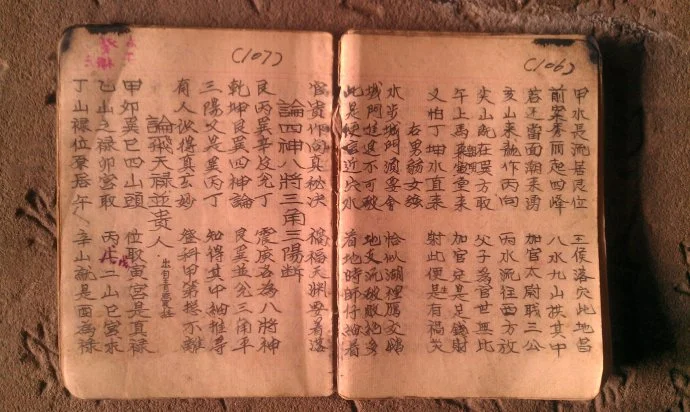 (106)
甲水長流居艮位 王侯落穴此地昌
前案秀麗起四峰 八水九山挨其中
若還當面潮來湧 加官太尉職三公
亥山來龍作丙向 丙水流往西方放
尖山既在巽方取 父子為官世無比
午上馬來重重來 加官定是足錢財
又怕丁坤水直來 射此便是有禍災
水步城門須要會 恰似湖裡雁交
城門進退不可破 地支流破敗絕多
此是便宜近穴水 着地時師仔細看
(107)
富貴作向真秘訣 禍福天淵要着落
論四神八將三角三陽斷
艮丙巽辛兌丁 震庚各為八將神
乾坤艮巽四神論 艮巽並兌三角平
三陽又是巽丙丁 知得其中細推尋
有人識得真玄妙 登科甲第榜不離
論飛天祿並貴人 出自青囊經
甲卯巽巳四山頭 位取寅宮是真祿
乙山之祿卯宮取 丙戊二山巳宮求
丁山祿位原居午 辛山就是酉為祿